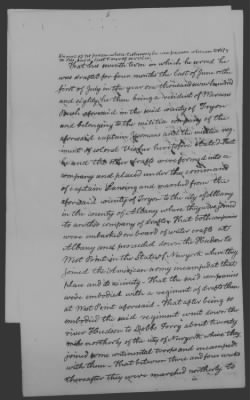 That his seventh term on which he served he
was drafted for four months the last of June or the
first of July in the year one thousand seven hundred
and eighty he then being a resident of
Bush aforesaid in the said county of Tryon
and belonging to the militia company of the
aforesaid captain and the militia regi-
ment of colonel Visher heretofore stated that
he and the other drafts were formed into a
company and placed under the command
of captain and marched from the
aforesaid county of Tryon to the city of Albany
in the county of Albany where they were joined
to another company of drafts. That both companies
were embarked on board of water craft at
Albany and proceeded down the Hudson to
West Point in the State of New York where they
joined the American army encamped at that
place and its vicinity. That the said companies
were embodied with a regiment of drafts then
at West Point aforesaid. That after being so
embodied the said regiment went down the
river Hudson to Dobbs Ferry about twenty
miles northerly of the city of New York where they
joined some continental troops and encamped
with them. That between three and four weeks
thereafter they were marched northerly to